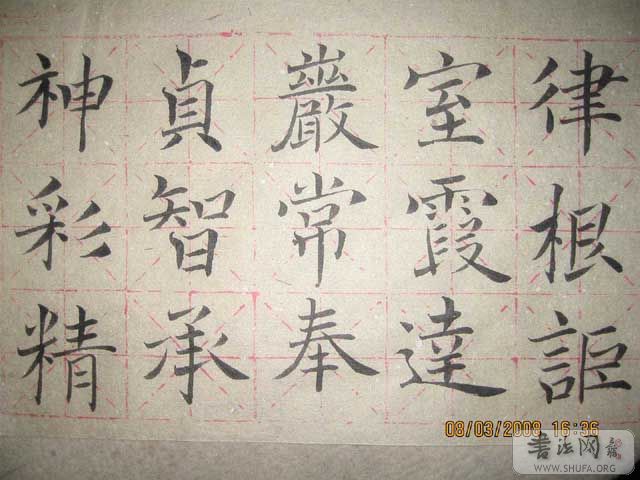 律根詎
室霞達
嚴常奉
貞智承
神彩精
08/03/2008 16:36
書法网
WWW.SHUFA.ORG